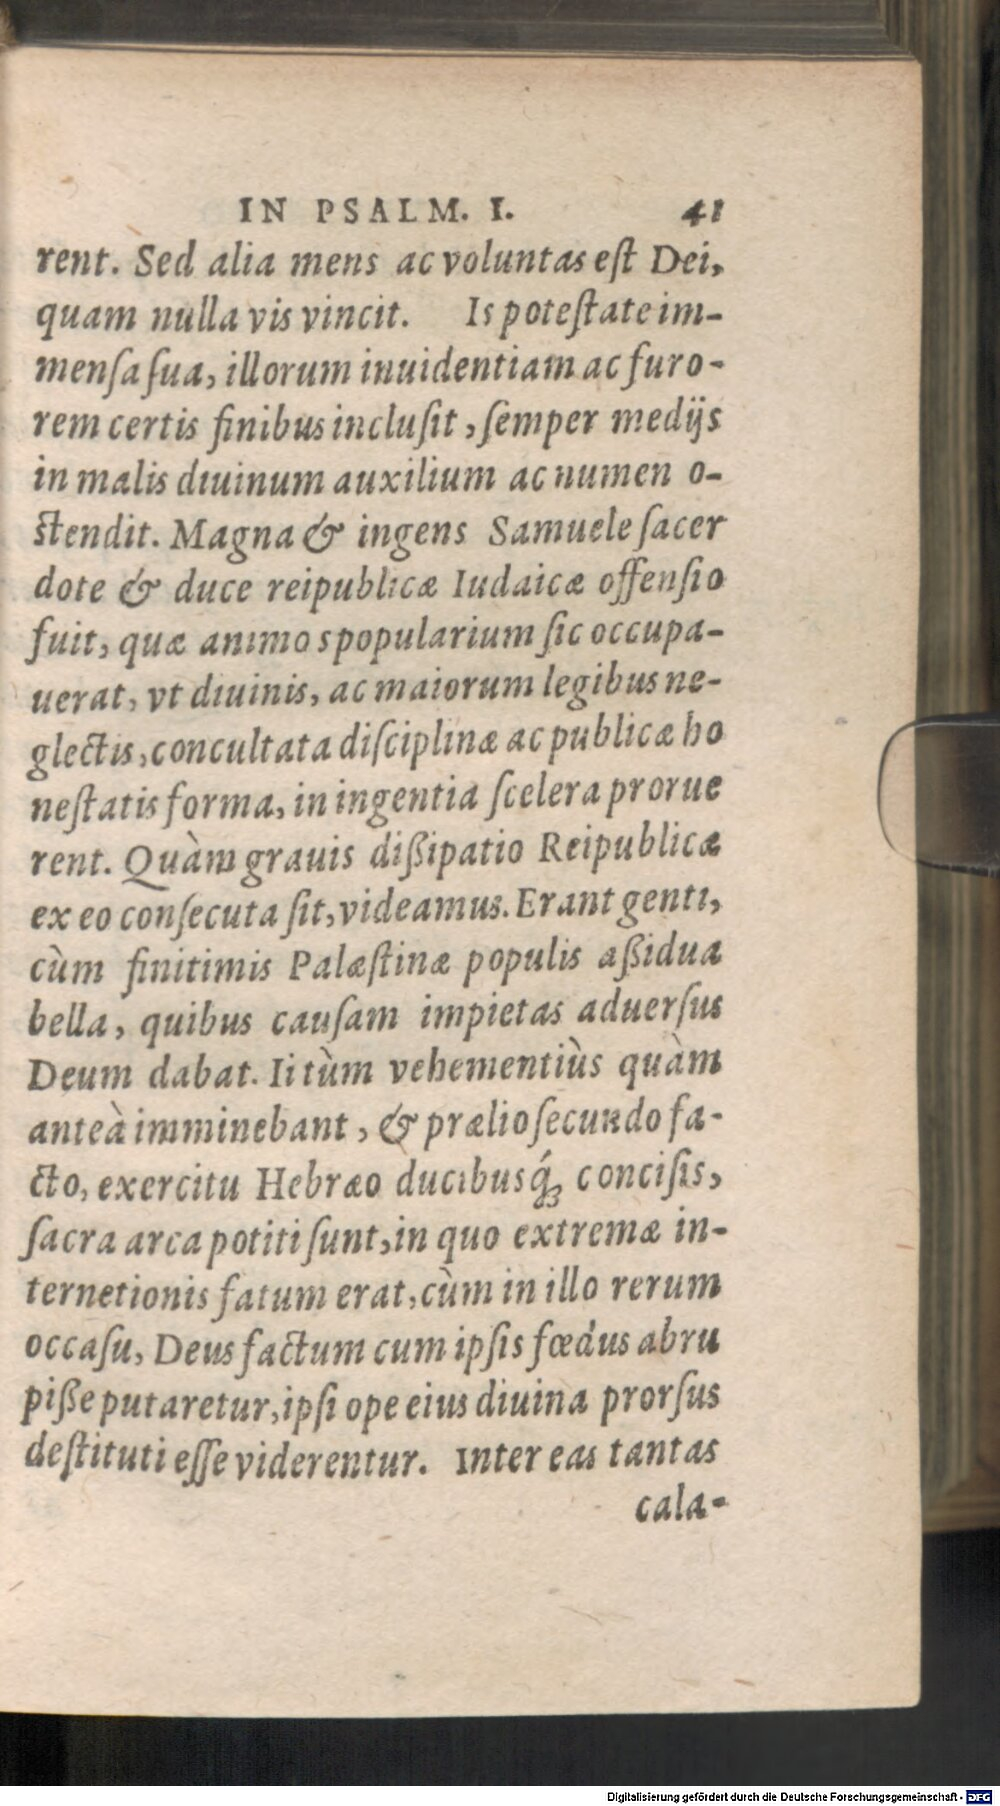 IN PSALM. I. 41
rent. Sed alia mens ac voluntas eſt Dei,
quam nulla vis vincit. Is poteſtate im-
menſa ſua, illorum inuidentiam ac furo-
rem certis finibus incluſit, ſemper medijs
in malis diuinum auxilium ac numen o-
ſtendit. Magna & ingens Samuele ſacer
dote & duce reipublicæ Iudaicæ offenſio
fuit, quæ animos popularium ſic occupa-
uerat, vt diuinis, ac maiorum legibus ne-
glectis, concultata diſciplinæ ac publicæ ho
neſtatis forma, in ingentia ſcelera prorue
rent. Quàm grauis dißipatio Reipublicæ
ex eo conſecuta ſit, videamus. Erant genti,
cùm finitimis Palæſtinæ populis aßidua
bella, quibus cauſam impietas aduerſus
Deum dabat. Ii tùm vehementiùs quàm
anteà imminebant, & prælio ſecundo fa-
cto, exercitu Hebræo ducibusq́; conciſis,
ſacra arca potiti ſunt, in quo extremæ in-
ternetionis fatum erat, cùm in illo rerum
occaſu, Deus factum cum ipſis fœdus abru
piße putaretur, ipſi ope eius diuina prorſus
deſtituti eſſe viderentur. Inter eas tantas
cala-
Digitalisierung gefördert durch die Deutsche Forschungsgemeinschaft - DFG